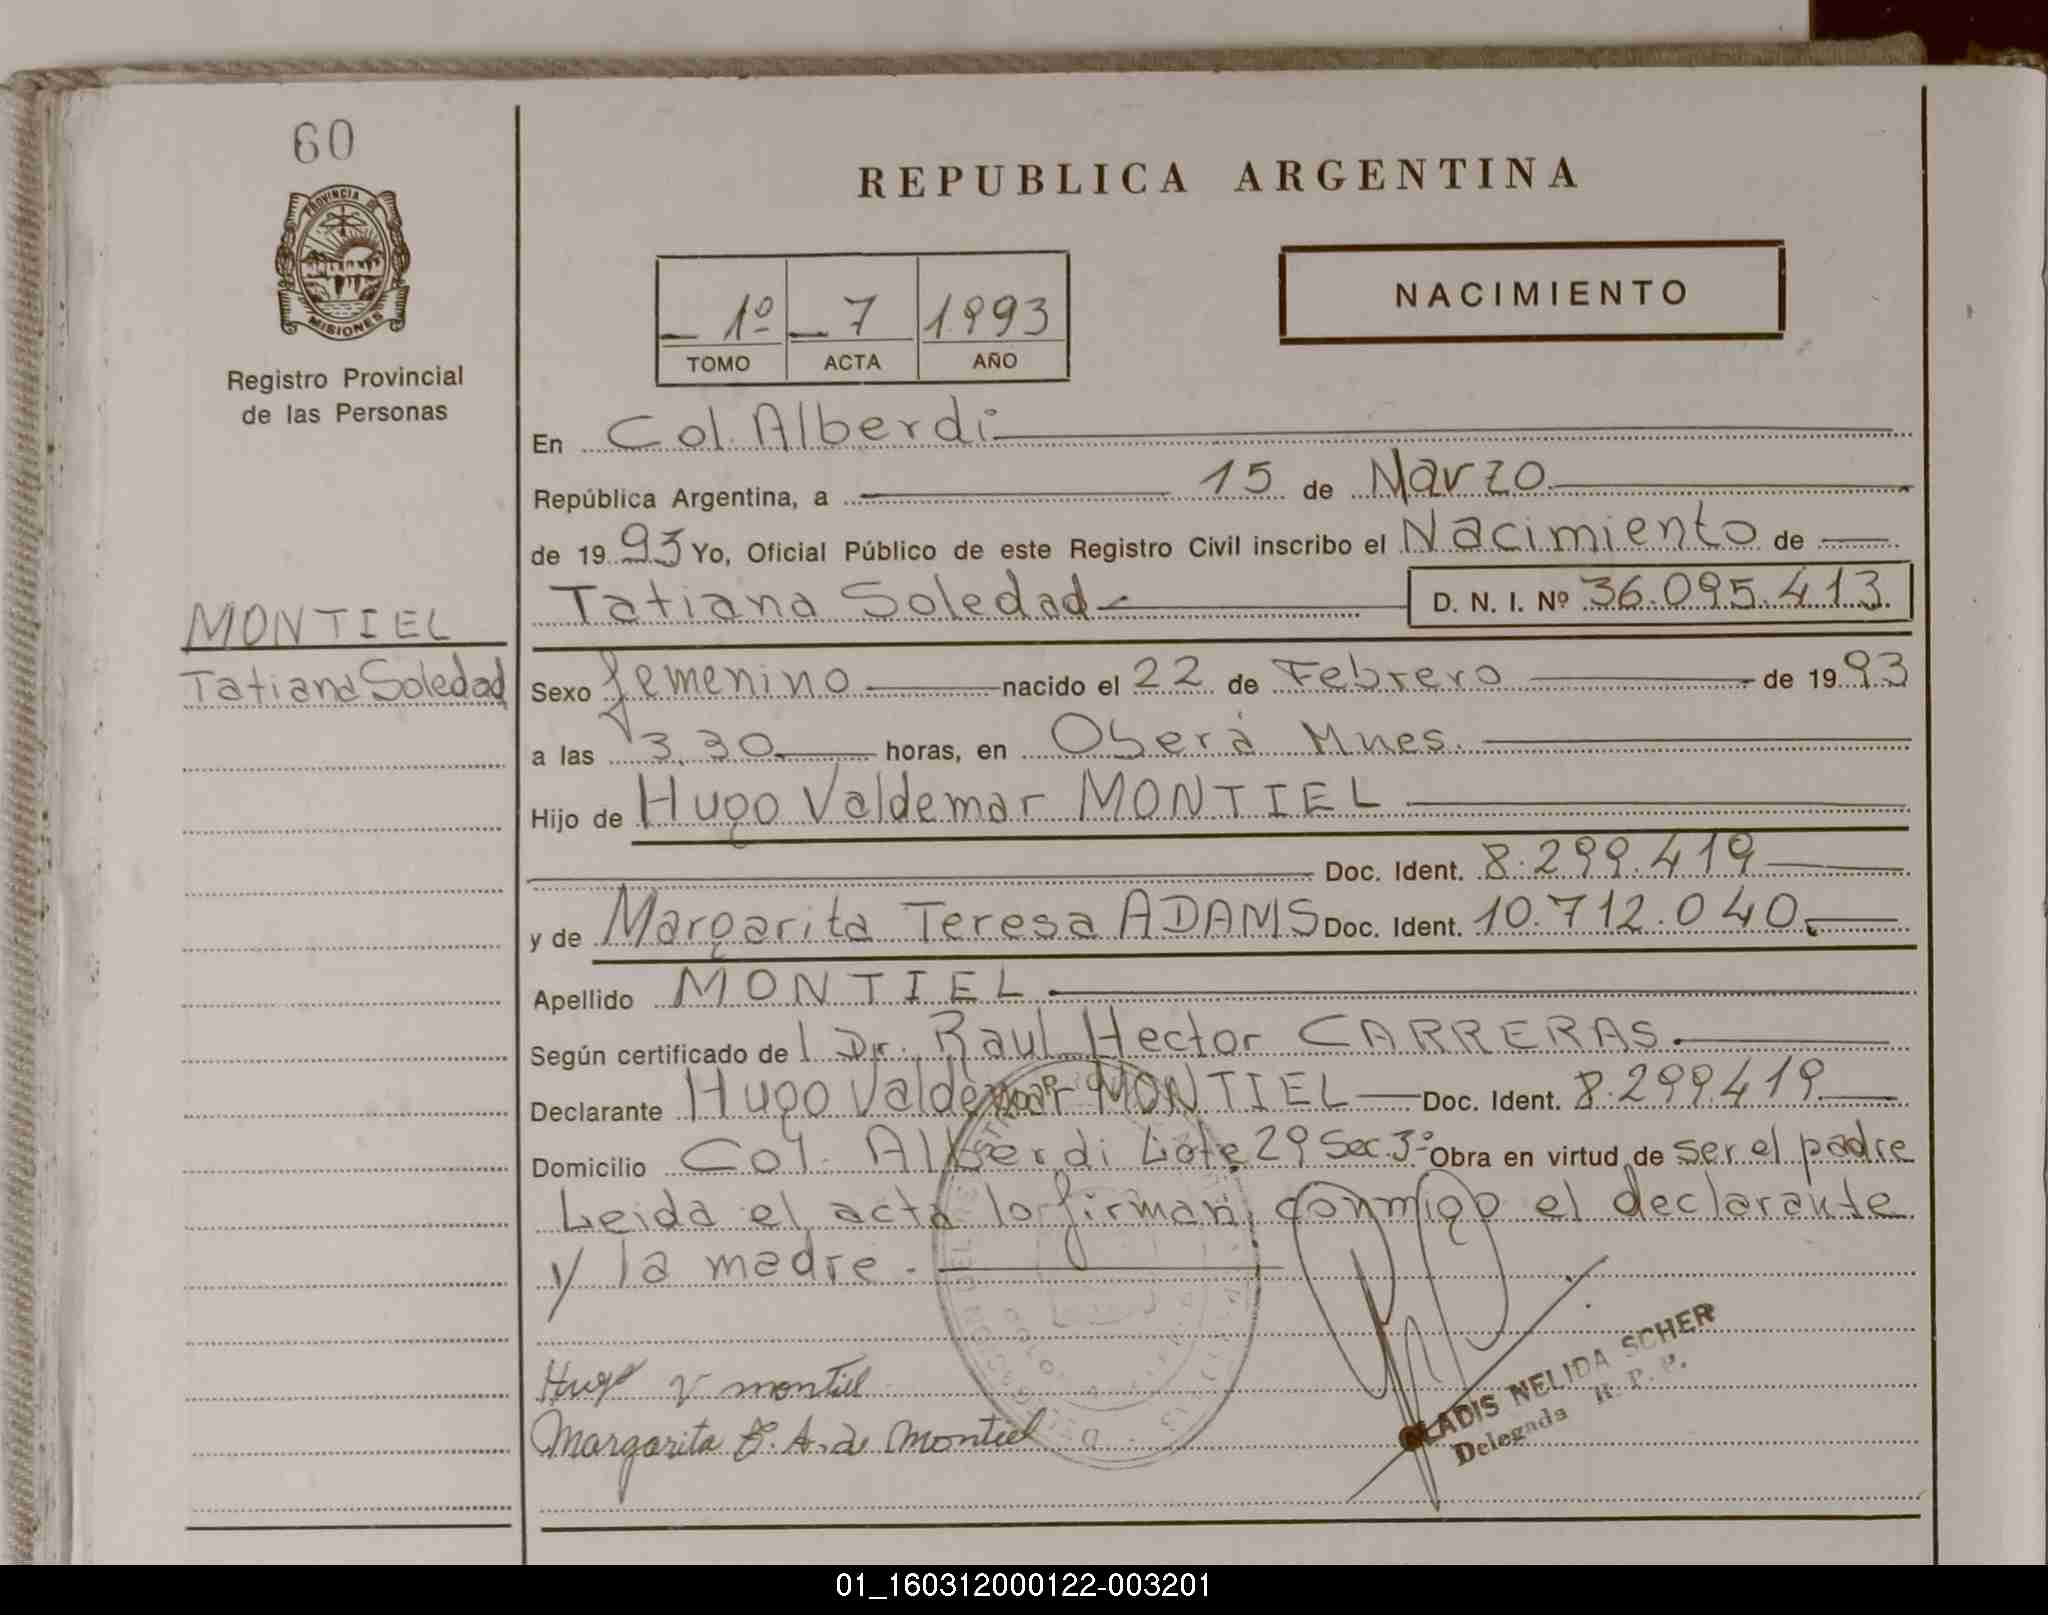 60
PROVINCIA DE
MISIONES
Registro Provincial
de las Personas
MONTIEL
Tatiana Soledad
REPUBLICA ARGENTINA
1º 7 1993
TOMO ACTA AÑO
NACIMIENTO
En Col. Alberdi
República Argentina, a 15 de Marzo
de 1993 Yo, Oficial Público de este Registro Civil inscribo el Nacimiento de
Tatiana Soledad D. N. I. Nº 36.095.413
Sexo femenino nacido el 22 de Febrero de 1993
a las 3,30 horas, en Oberá Mnes.
Hijo de Hugo Valdemar MONTIEL
Doc. Ident. 8.299.419
y de Margarita Teresa ADAMS Doc. Ident. 10.712.040.
Apellido MONTIEL
Según certificado de l Dr. Raul Hector CARRERAS.
Declarante Hugo Valdemar MONTIEL Doc. Ident. 8.299.419
Domicilio Col. Alberdi Lote 29 Sec. 3º Obra en virtud de ser el padre
Leida el acta lo firman, conmigo el declarante
y la madre.
Hugo V montiel
Margarita T. A. de Montiel
GLADIS NELIDA SCHER
Delegada R. P. P.
01_160312000122-003201